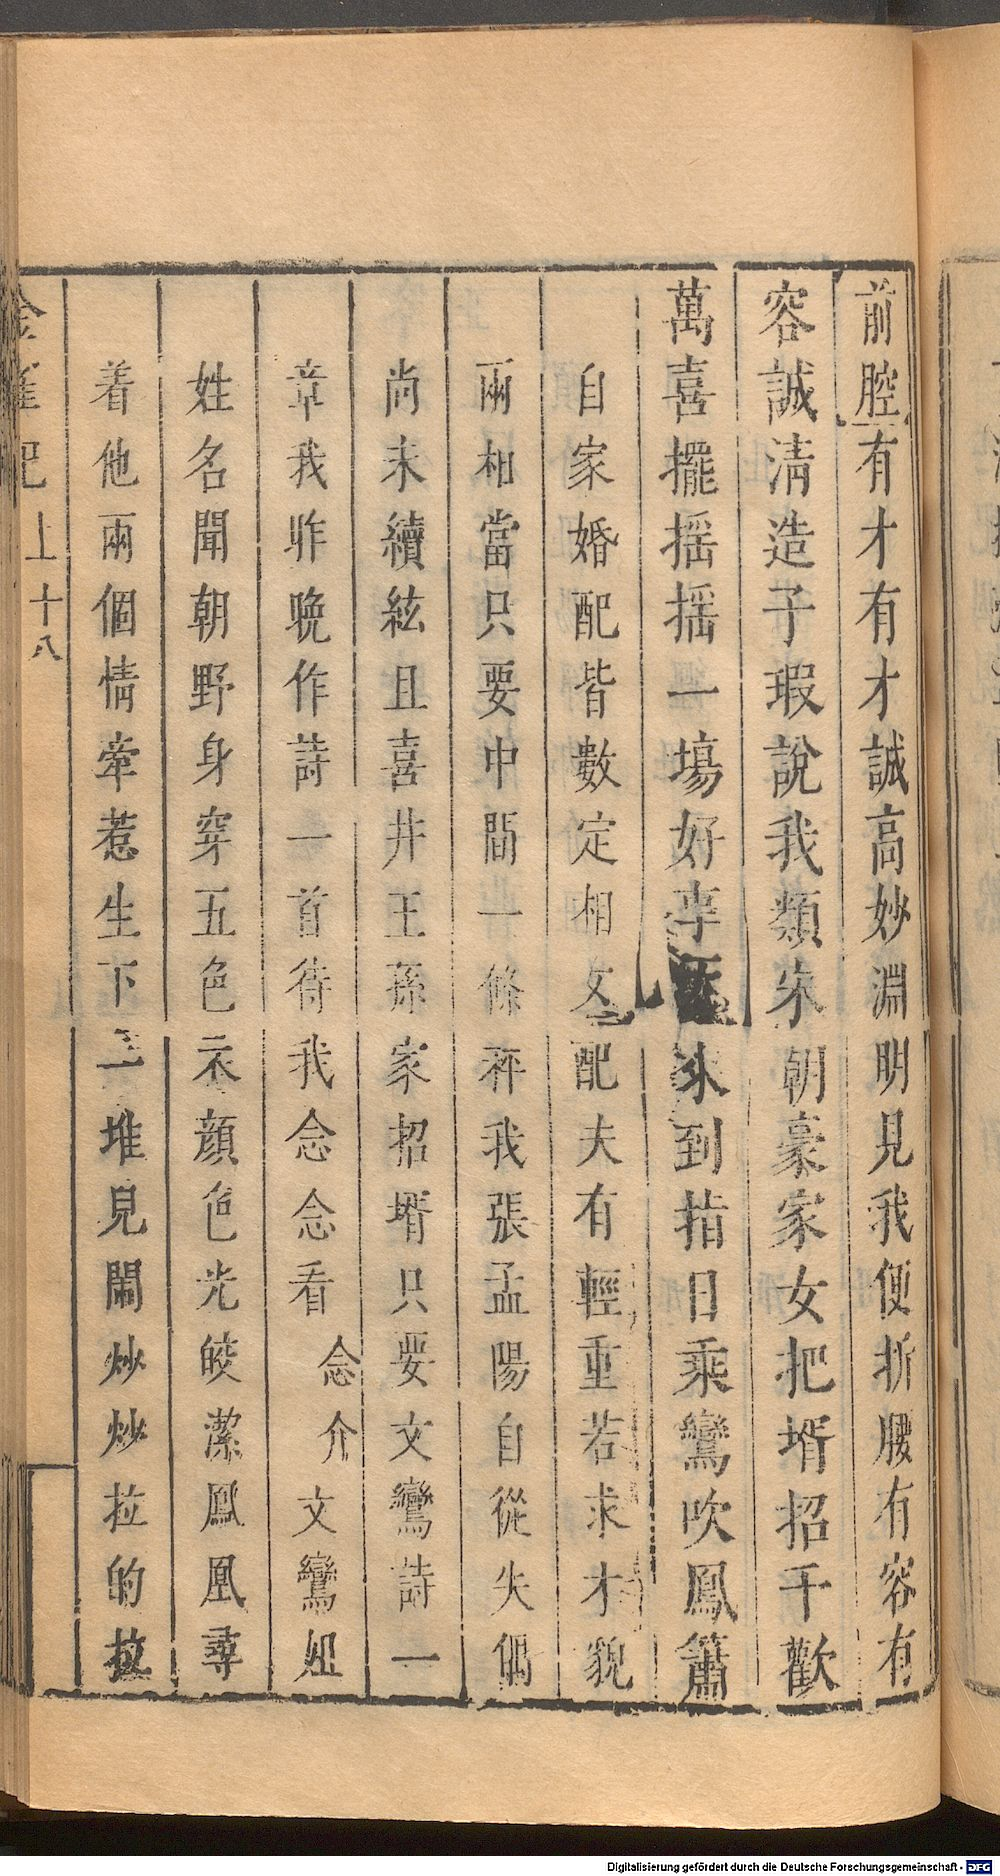 前腔有才有才誠高妙淵明見我便折腰有容有
容誠淸造子瑕說我類宋朝豪家女把壻招千歡
萬喜擺摇摇一塲好事來到指日乘鸞吹鳳簫
自家婚配皆數定相女配夫有輕重若求才貌
兩相當只要中間一條秤我張孟陽自從失偶
尚未續絃且喜井王孫家招壻只要文鸞詩一
章我昨晚作詩一首待我念念看念介文鸞姐
姓名聞朝野身穿五色衣顔色光皎潔鳳凰尋
着他兩個情牽惹生下一堆兒鬧炒炒拉的拉
金雀記上十八
Digitalisierung gefördert durch die Deutsche Forschungsgemeinschaft - DFG